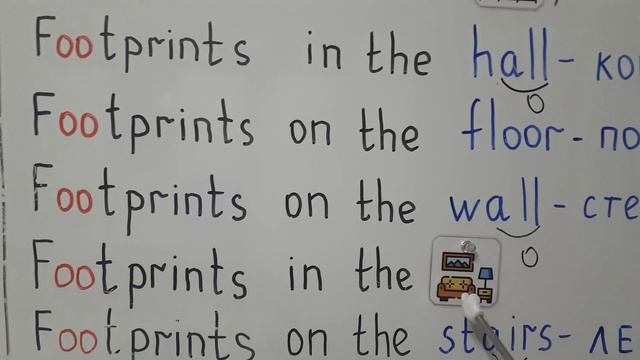 Footprints in the hall - ко
o
Footprints on the floor - по
Footprints on the wall - сте
o
Footprints in the
Footprints on the stairs - ле